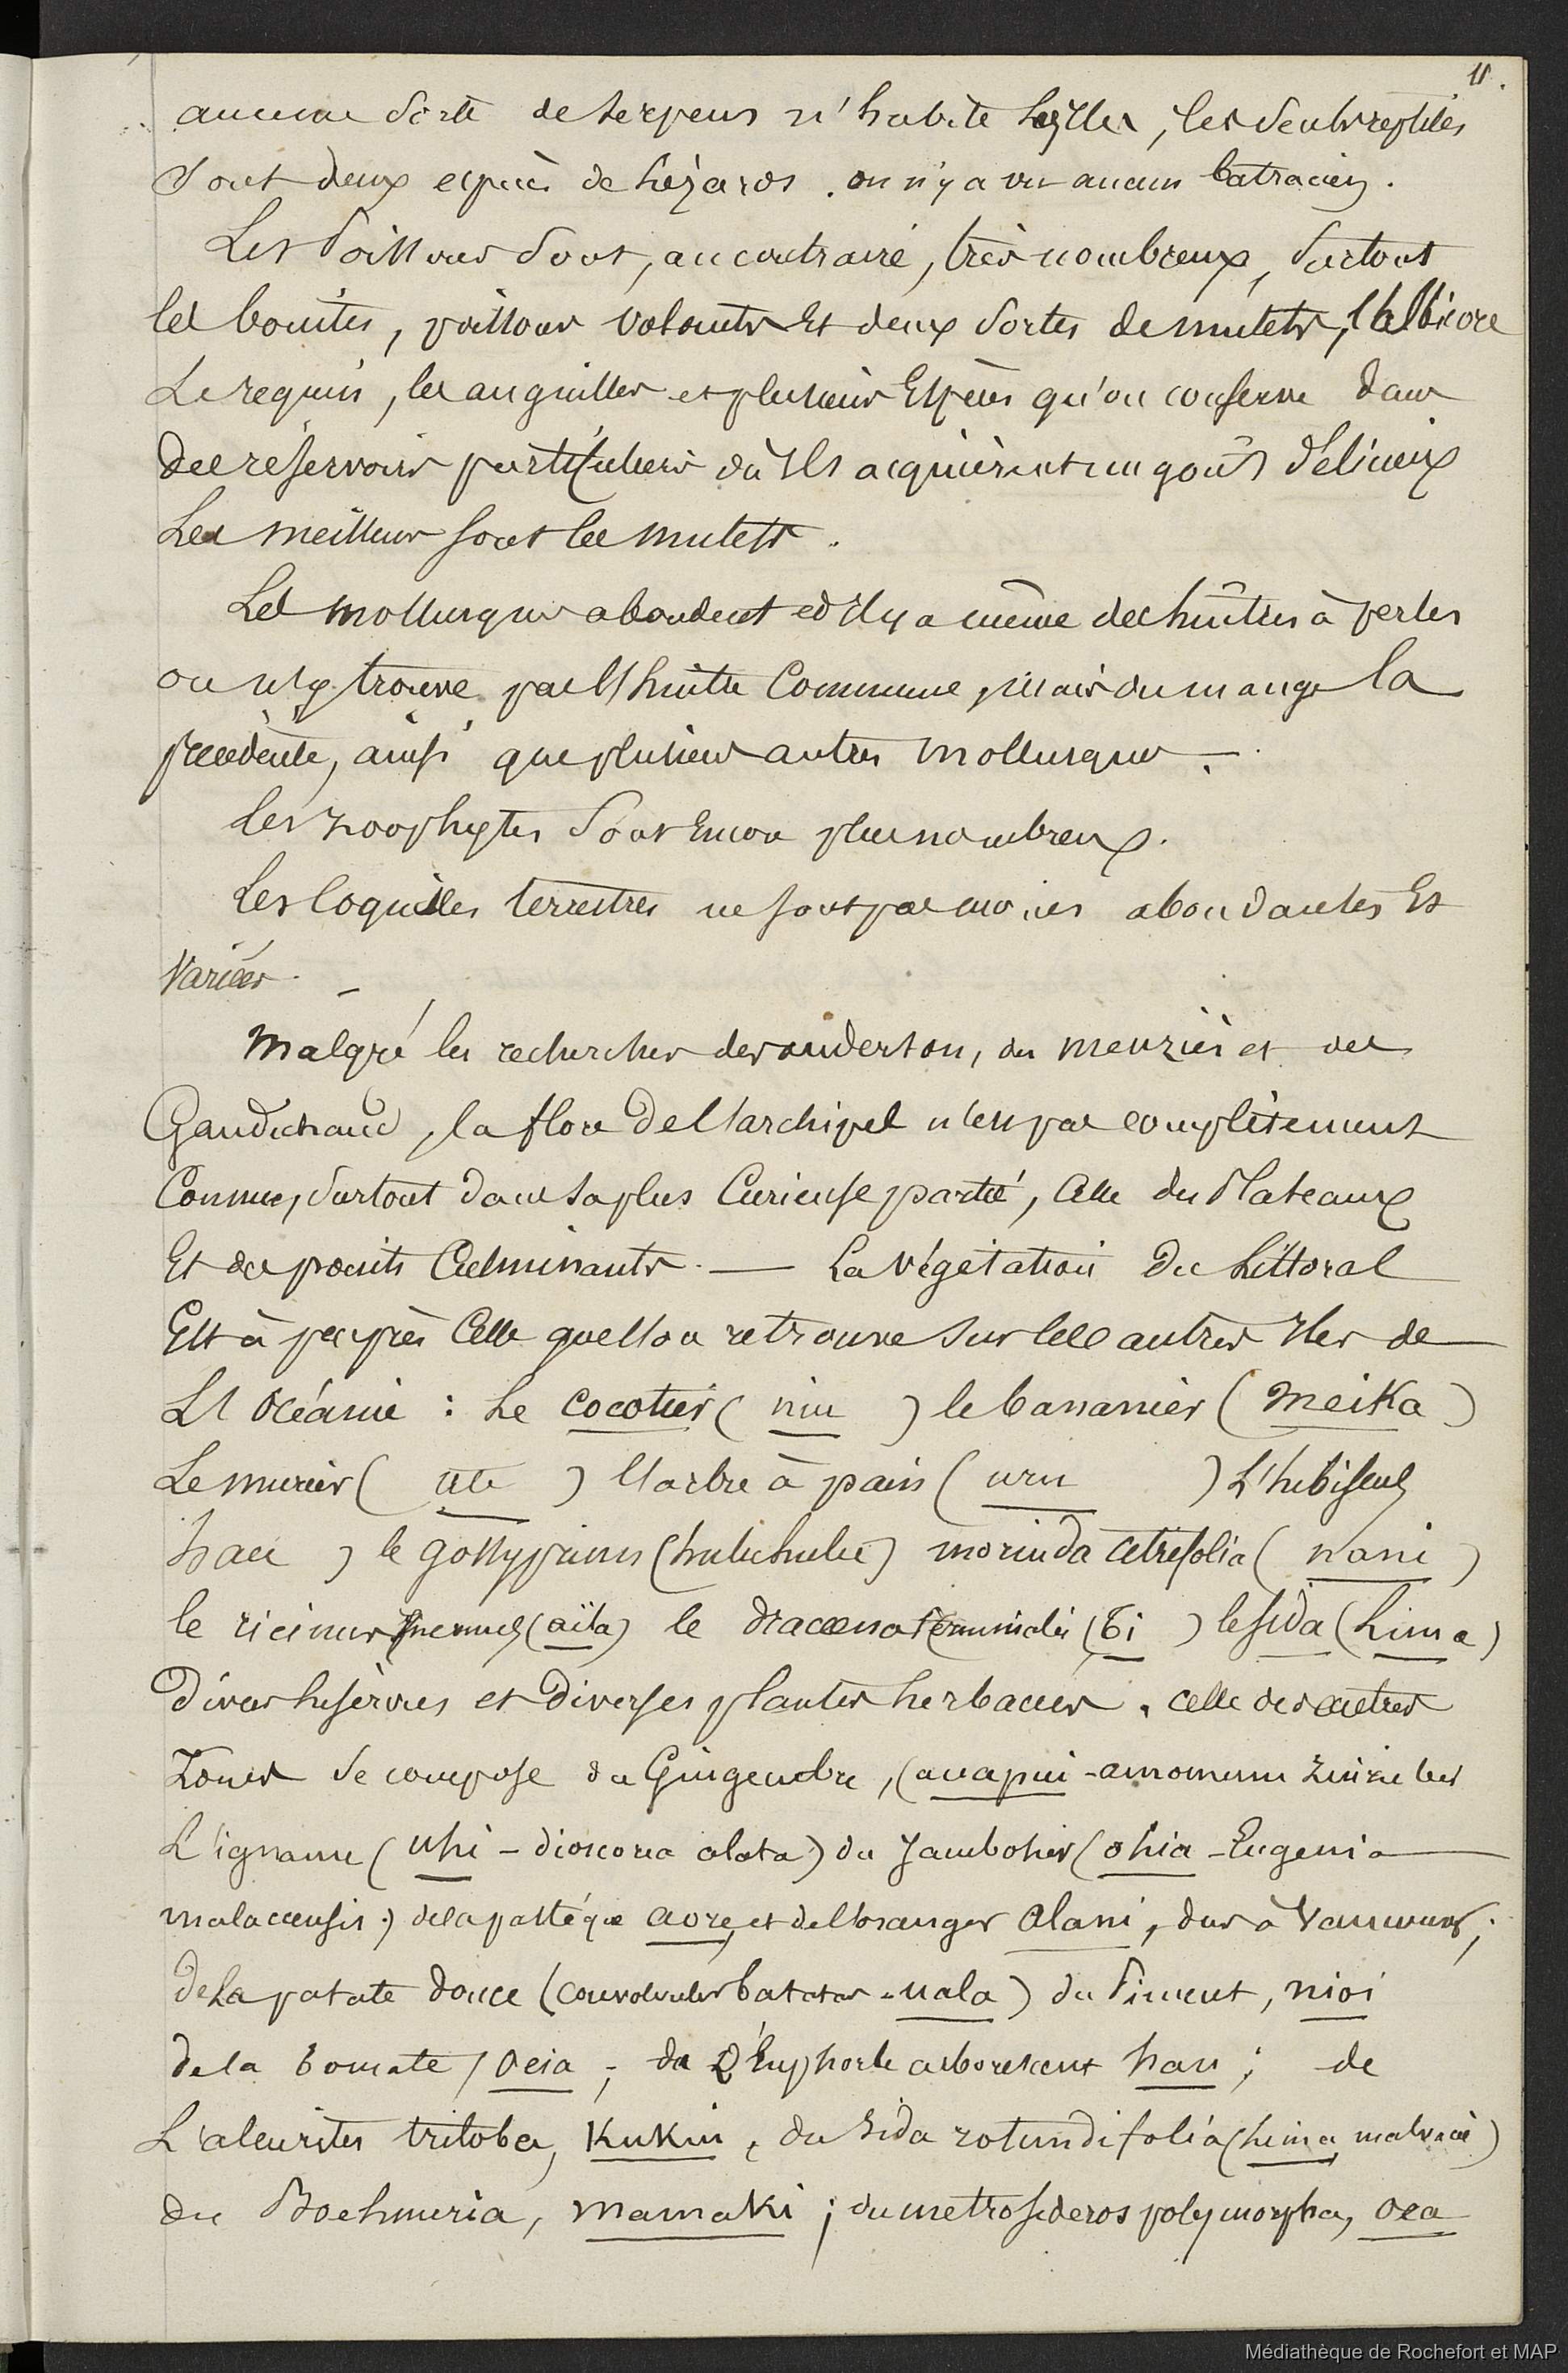 11.
aucune sorte de serpens n'habite les Iles, les seuls reptiles
sont deux espèces de lézards. on n'y a vu aucun batracien.
Les Poissons sont, au contraire, très nombreux, surtout
les bonites, poissons volants Et deux sortes de mulets, l'albicore
Le requin, les anguilles et plusieurs Espèces qu'on conserve dans
des réservoirs particuliers où Ils acquièrent un goût délicieux
Les meilleurs sont les mulets.
Les mollusques abondent et il y a même des huîtres à perles
on n'y trouve pas l'huître Commune, mais on mange la
précédente, ainsi que plusieurs autres mollusques —.
les zoophytes sont Encore plus nombreux.
Les Coquilles terrestres ne sont pas moins abondantes Et
Variées. —
Malgré les recherches des anderson, des menziès et des
Gaudichaud, la flore de l'archipel n'est pas complètement
Connue, surtout dans sa plus Curieuse partie, Celle des Plateaux
Et des points Culminants. — La Végétation du Littoral
Est à peu près Celle que l'on retrouve sur les autres Iles de
L'Océanie : Le cocotier ( niu ) le bananier ( Meika )
Le murier ( ute ) l'arbre à pain ( uru ) L'hibiscus
hau ) le gossypium (huluhulu) morinda citrifolia ( noni )
le ricinus (aïla) le dracoena terminalis (Ti ) le sida (hima)
Divers liserons et Diverses plantes herbacées. celle des autres
Zones se compose du Gingembre, (avapui - amomum zinziber
L'igname ( Uhi - dioscorea alata) du Jambosier (ohia - Eugenia
malaccensis.) de la pastèque aore, et de l'oranger alani, dus à Vancouver ;
de La patate douce (convolvulus batatas - uala) du Piment, nioi
de la tomate, oeia ; de L'Euphorbe arborescent hau ; de
L'aleurites triloba, Kukui, du Sida rotundifolia (hima, malvacé)
du Boehmeria, mamaki ; du metrosideros polymorpha, oea
Médiathèque de Rochefort et MAP